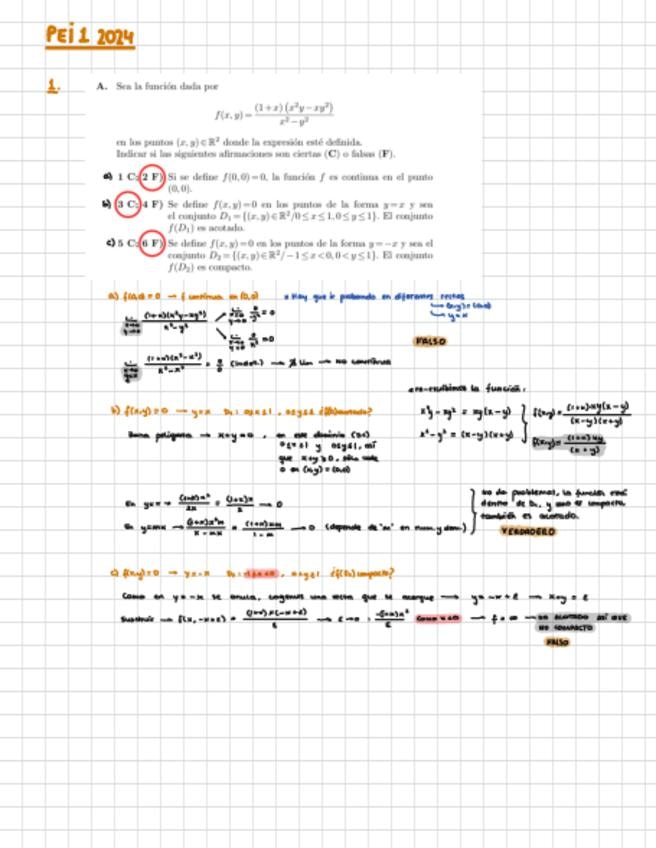 PEI 1 2024
1. A. Sea la función dada por
f(x, y) = (1+x)(x²y−xy²) / x²−y²
en los puntos (x, y) ∈ ℝ² donde la expresión esté definida.
Indicar si las siguientes afirmaciones son ciertas (C) o falsas (F).
a) 1 C; 2 F) Si se define f(0,0)=0, la función f es continua en el punto
(0,0).
b) 3 C; 4 F) Se define f(x,y)=0 en los puntos de la forma y=x y sea
el conjunto D₁={(x,y)∈ℝ²/0≤x≤1,0≤y≤1}. El conjunto
f(D₁) es acotado.
c) 5 C; 6 F) Se define f(x,y)=0 en los puntos de la forma y=−x y sea el
conjunto D₂={(x,y)∈ℝ²/−1≤x<0,0<y≤1}. El conjunto
f(D₂) es compacto.
a) f(0,0)=0 → f continua en (0,0) * Hay que ir probando en diferentes rectas
y=x
FALSO
(indet.) → ∄ Lim → no continua
re-escribimos la función:
b) f(x,y)=0 → y=x D₁: 0≤x≤1, 0≤y≤1 ¿f(D₁) acotado?
x²y − xy² = xy(x−y)
f(x,y) = (1+x)xy(x−y) / (x−y)(x+y)
x² − y² = (x−y)(x+y)
f(x,y) = (1+x)xy / (x+y)
→ x+y=0, en este dominio (D₁)
0≤x≤1 y 0≤y≤1, así
que x+y≥0, sólo vale
0 en (x,y)=(0,0)
no da problemas, la función está
dentro de D₁, y como es compacto
también es acotado.
En y=x →
En y=mx → (depende de "m" en num. y den.)
VERDADERO
c) f(x,y)=0 → y=−x D₂: −1≤x<0, 0<y≤1 ¿f(D₂) compacto?
Como en y=−x se anula, cogemos una recta que se acerque → y=−x+ε → x+y=ε
Sustituir → f(x,−x+ε) = (1+x)x(−x+ε) / ε → ε→0 : −(1+x)x² / ε Como x<0 → f=∞ → no acotado así que
no compacto
FALSO